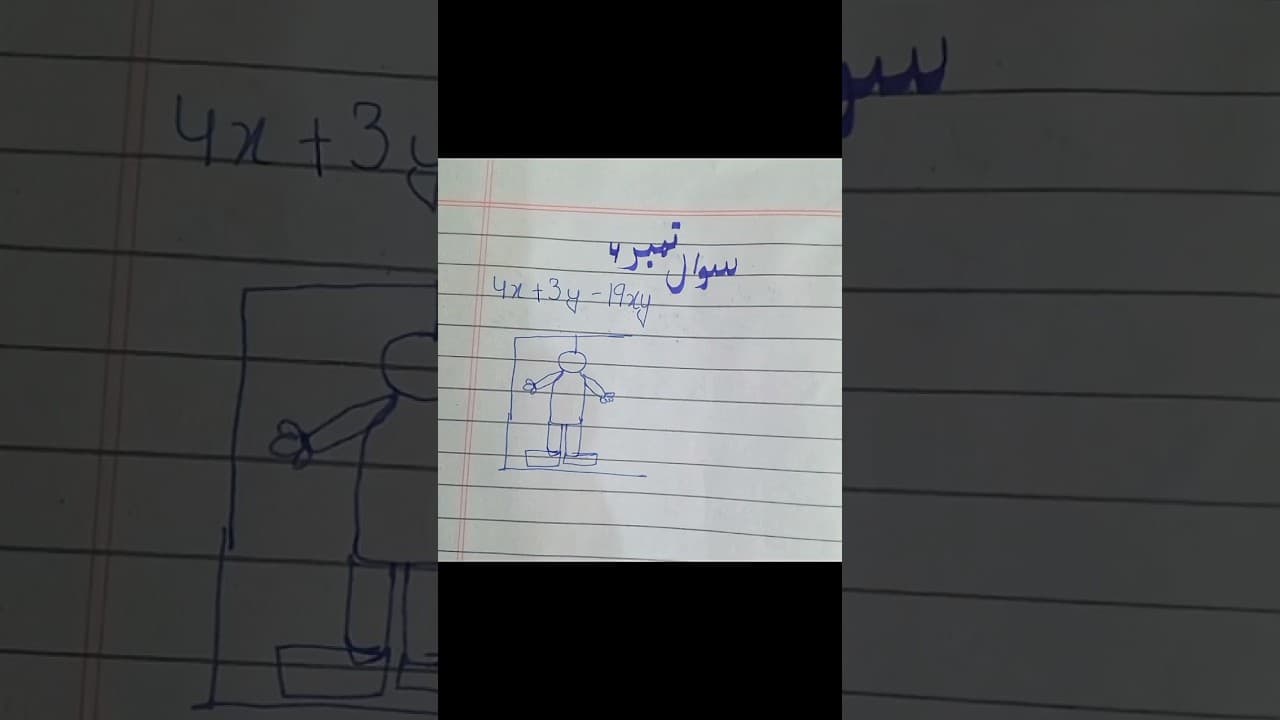 سوال نمبر ۴
4x+3y-19xy